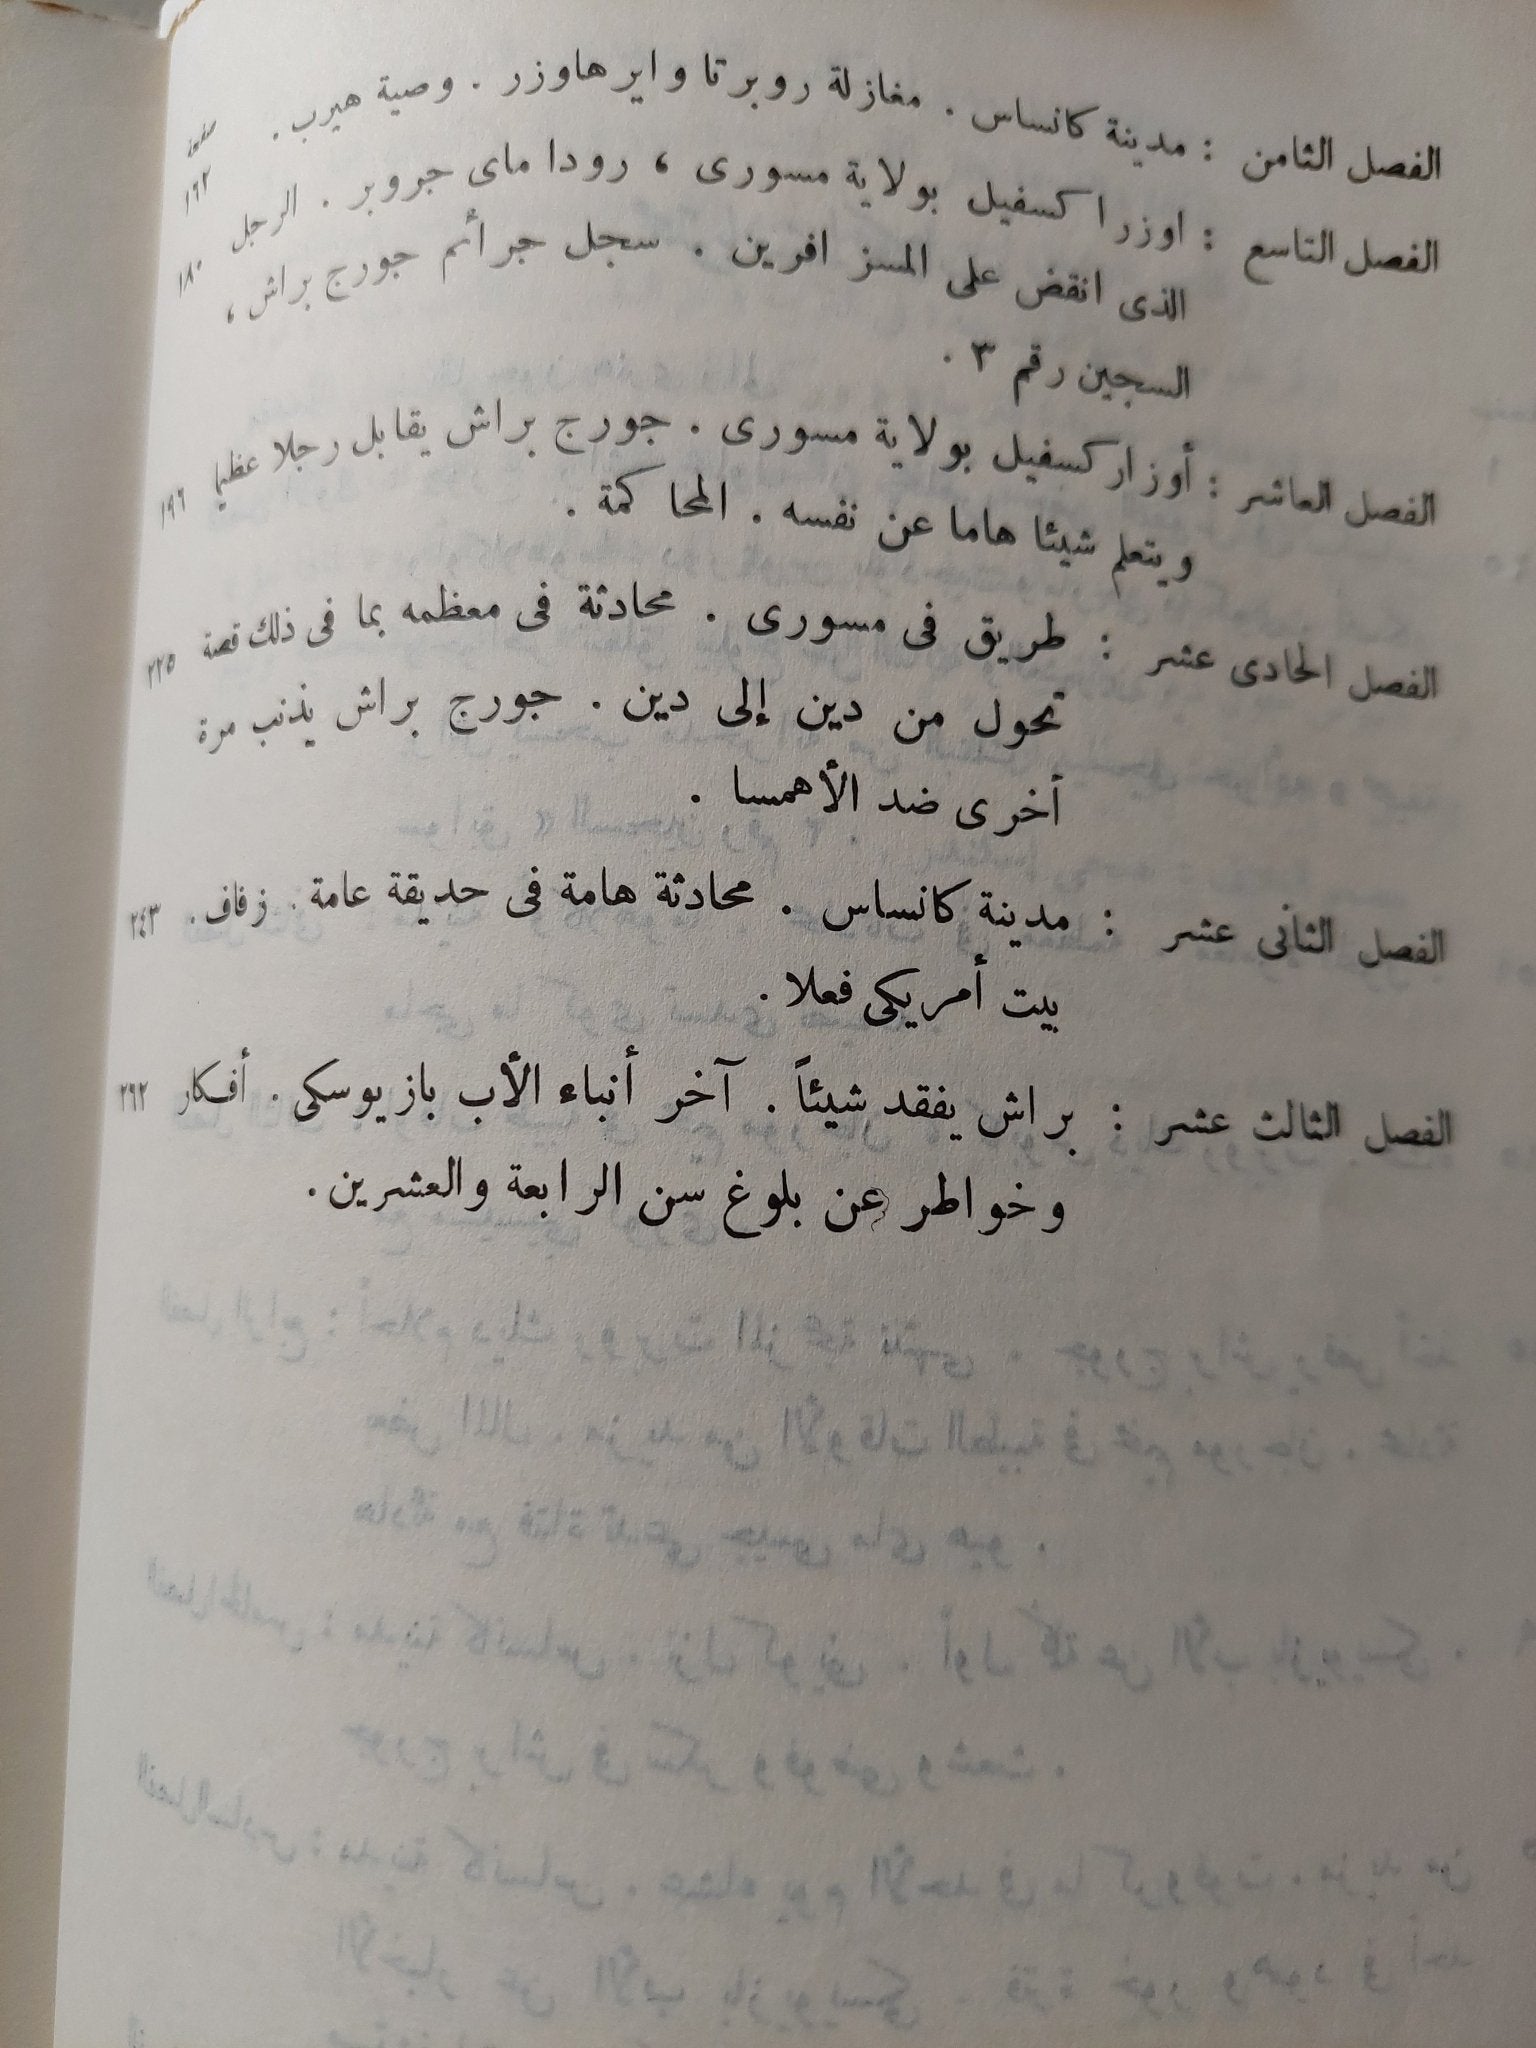 صفحة
الفصل الثامن : مدينة كانساس . مغازلة روبرتا واير هاوزر . وصية هيرب . ١٦٢
الفصل التاسع : اوزرا كسفيل بولاية مسورى ، رودا ماى جروبر . الرجل ١٨٠
الذى انقض على المسز افرين . سجل جرأئم جورج براش ،
السجين رقم ٣ .
الفصل العاشر : أوزاركسفيل بولاية مسورى . جورج براش يقابل رجلا عظيما ١٩٦
ويتعلم شيئا هاما عن نفسه . المحاكمة .
الفصل الحادى عشر : طريق فى مسورى . محادثة فى معظمه بما فى ذلك قصة ٢٢٥
تحول من دين إلى دين . جورج براش يذنب مرة
أخرى ضد الأهمسا .
الفصل الثانى عشر : مدينة كانساس . محادثة هامة فى حديقة عامة . زفاف . ٢٤٣
بيت أمريكى فعلا .
الفصل الثالث عشر : براش يفقد شيئاً . آخر أنباء الأب بازيوسكى . أفكار ٢٦٢
وخواطر عن بلوغ سن الرابعة والعشرين .